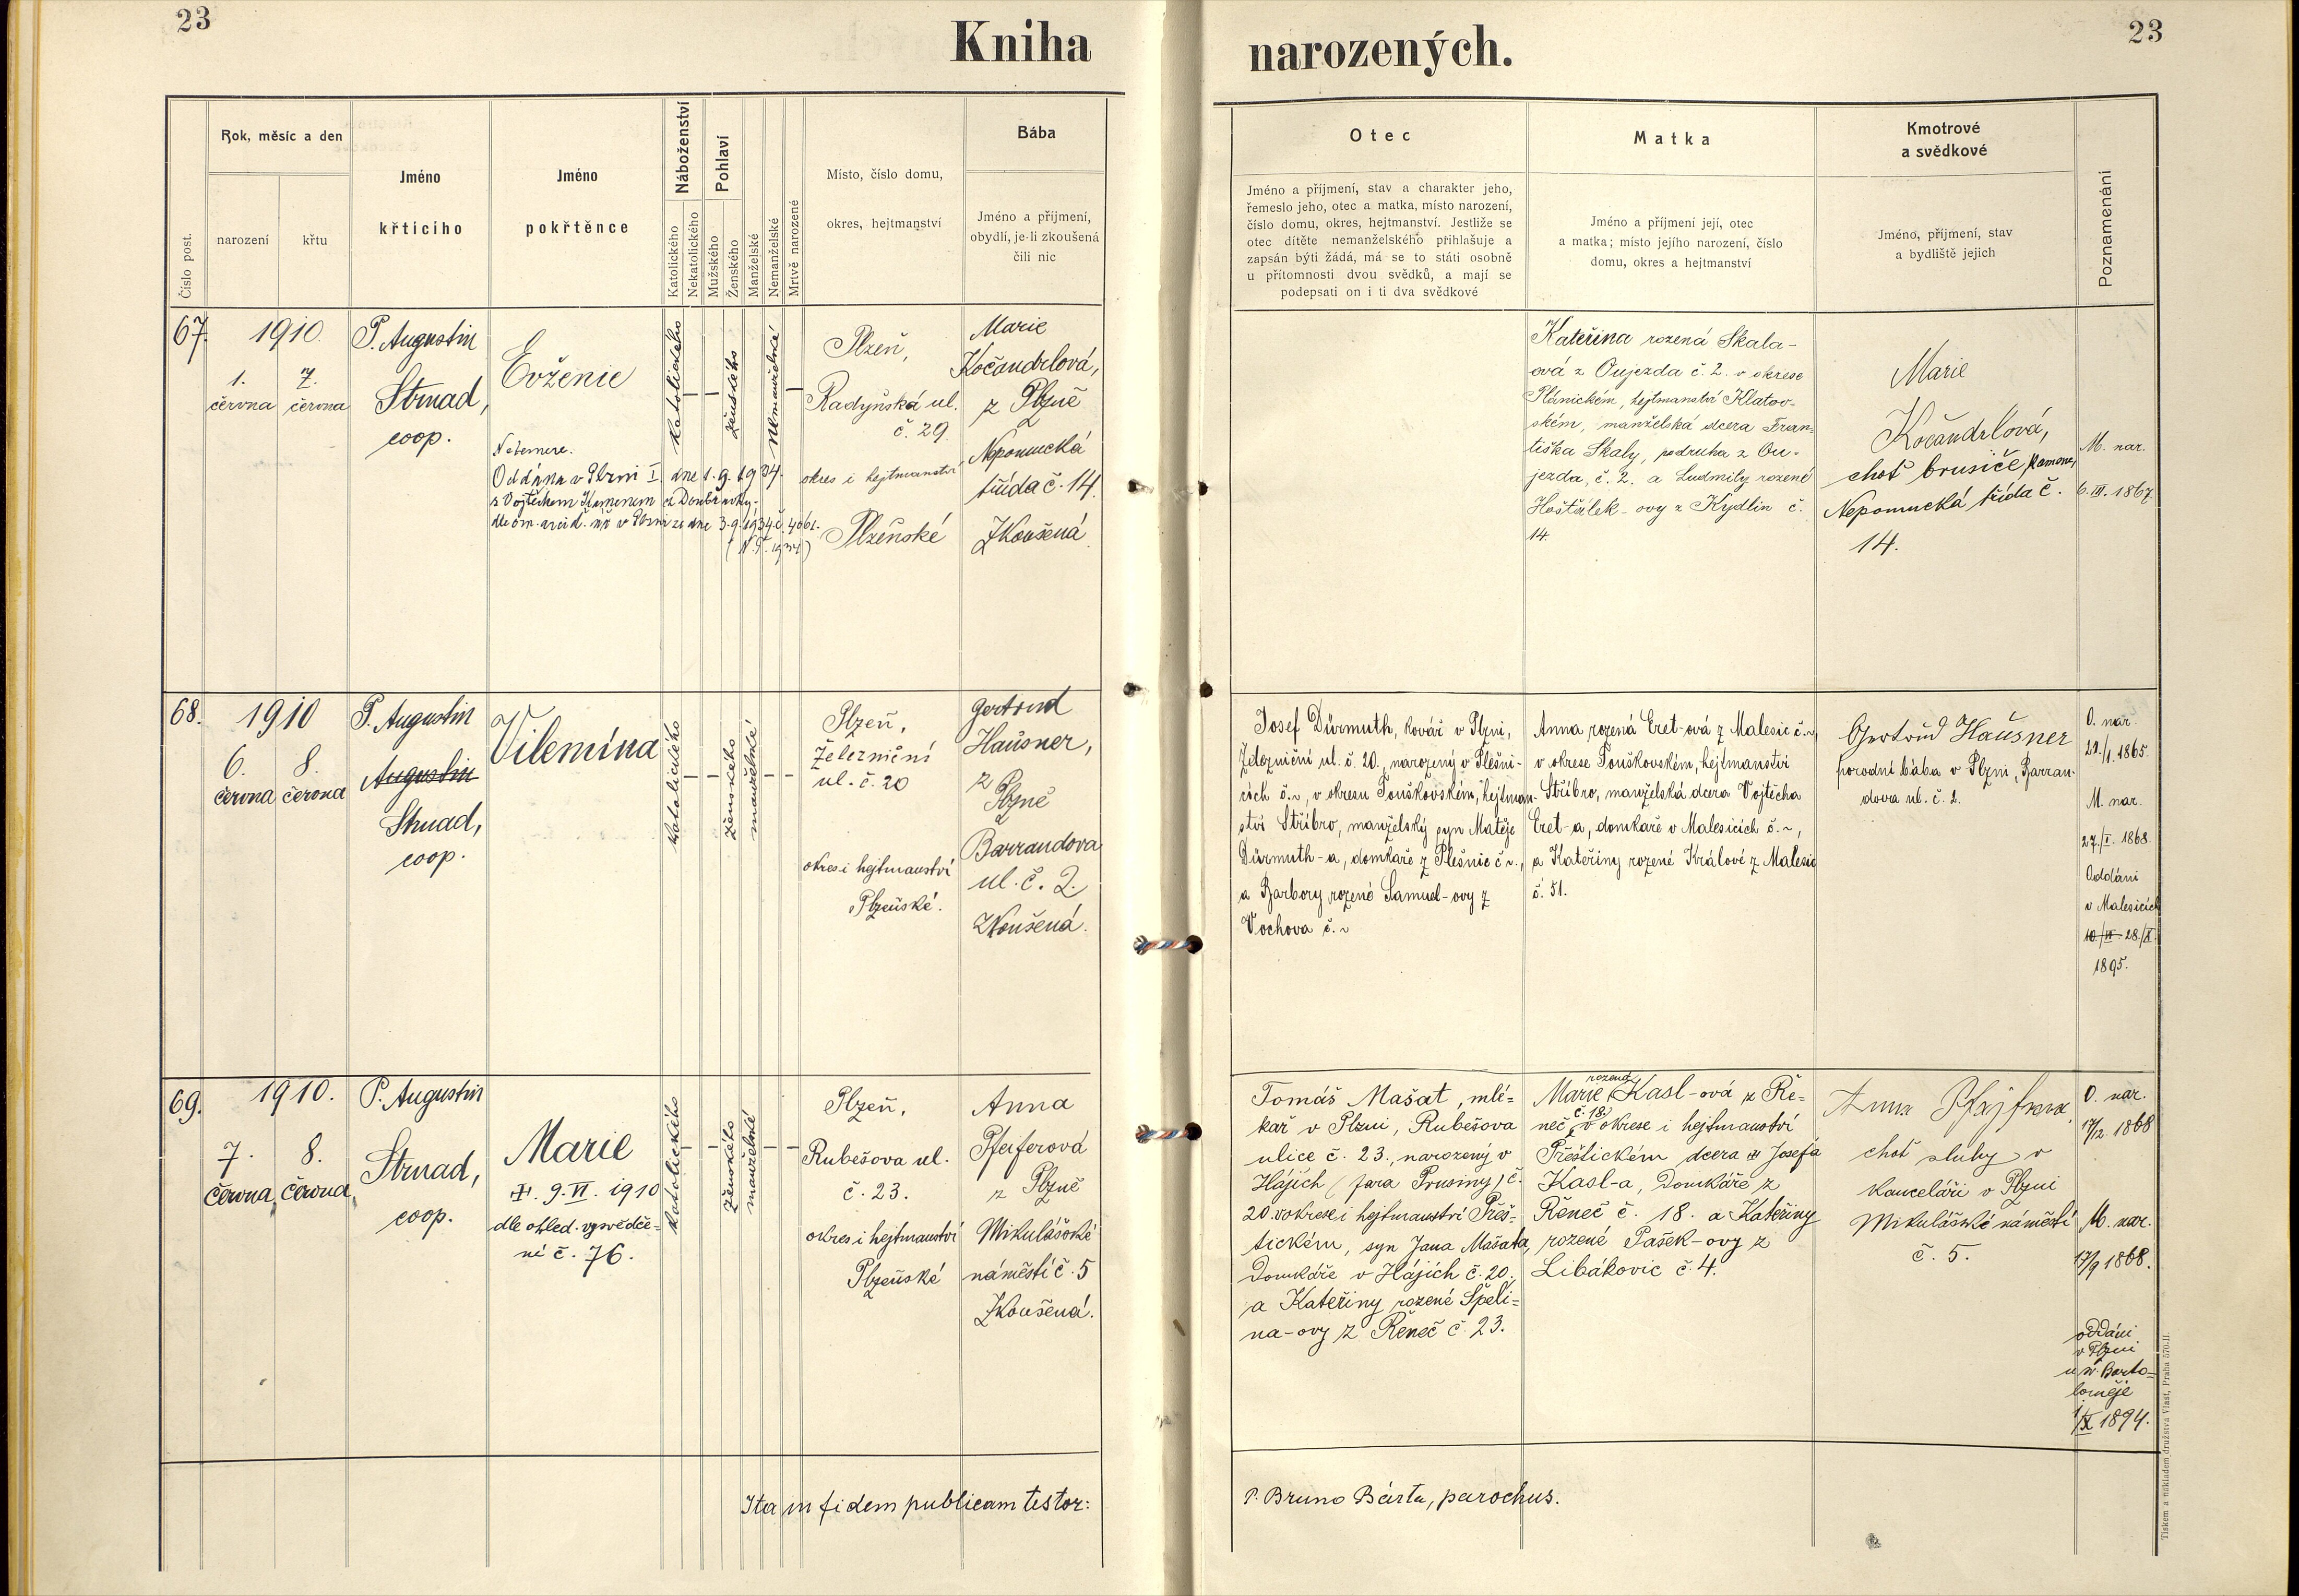 23
Kniha
narozených.
23
Číslo post.
Rok, měsíc a den
narození
křtu
Jméno
křticího
Jméno
pokřtěnce
Náboženství
Katolického
Nekatolického
Pohlaví
Mužského
Ženského
Manželské
Nemanželské
Mrtvě narozené
Místo, číslo domu,
okres, hejtmanství
Bába
Jméno a příjmení,
obydlí, je-li zkoušená
čili nic
Otec
Jméno a příjmení, stav a charakter jeho,
řemeslo jeho, otec a matka, místo narození,
číslo domu, okres, hejtmanství. Jestliže se
otec dítěte nemanželského přihlašuje a
zapsán býti žádá, má se to státi osobně
u přítomnosti dvou svědků, a mají se
podepsati on i ti dva svědkové
Matka
Jméno a příjmení její, otec
a matka; místo jejího narození, číslo
domu, okres a hejtmanství
Kmotrové
a svědkové
Jméno, příjmení, stav
a bydliště jejich
Poznamenání
67.
1910.
1.
června
7.
června
P. Augustin
Strnad,
coop.
Evženie
Oddána v Plzni I. dne 1. 9. 1934.
s Vojtěchem Kamenem z Doubravky.
dle ozn. arcid. úř. v Plzni ze dne 3. 9. 1934 č. 4061.
katolického
ženského
nemanželské
Plzeň,
Radyňská ul.
č. 29.
okres i hejtmanství
Plzeňské
Marie
Kočandrlová,
z Plzně
Nepomucká
třída č. 14.
Zkoušená
Kateřina rozená Skala-
ová z Oujezda č. 2. v okrese
Plánickém, hejtmanství Klatov-
ském, manželská dcera Fran-
tiška Skaly, podruha z Ou-
jezda, č. 2. a Ludmily rozené
Hošťálek-ovy z Kydlin č.
14.
Marie
Kočandrlová,
choť brusiče kamene,
Nepomucká třída č.
14.
M. nar.
6. III. 1867.
68.
1910
6.
června
8.
června
P. Augustin
Augustin
Strnad,
coop.
Vilemína
katolického
ženského
manželské
Plzeň,
Železniční
ul. č. 20
okres i hejtmanství
Plzeňské.
Gertrud
Hausner,
z
Plzně
Barrandova
ul. č. 2.
Zkoušená.
Josef Dürmuth, kovář v Plzni,
Železniční ul. č. 20., narozený v Plešni-
cích č. ~, v okresu Touškovském, hejtman-
ství Stříbro, manželský syn Matěje
Dürmuth-a, domkaře z Plešnic č. ~,
a Barbory rozené Samuel-ovy z
Vochova č. ~
Anna rozená Eret-ová z Malesic č. ~,
v okrese Touškovském, hejtmanství
Stříbro, manželská dcera Vojtěcha
Eret-a, domkaře v Malesicích č. ~,
a Kateřiny rozené Králové z Malesic
č. 51.
Gertrud Hausner
porodní bába v Plzni, Barran-
dova ul. č. 2.
O. nar.
22./1. 1865.
M. nar.
27./I. 1868.
Oddáni
v Malesicích
28./X.
1895.
69.
1910.
7.
června
8.
června
P. Augustin
Strnad,
coop.
Marie
9. VI. 1910
dle ohled. vysvědče-
ní č. 76.
katolického
ženského
manželské
Plzeň,
Rubešova ul.
č. 23.
okres i hejtmanství
Plzeňské
Anna
Pfeiferová
z Plzně
Mikulášské
náměstí č. 5
Zkoušená.
Tomáš Mašat, mlé-
kař v Plzni, Rubešova
ulice č. 23., narozený v
Hájich (fara Prusiny) č.
20. v okrese i hejtmanství Přeš-
tickém, syn Jana Mašata,
Domkáře v Hájích č. 20.,
a Kateřiny rozené Špeli-
na-ovy z Řeneč č. 23.
Marie rozená Kasl-ová z Ře-
neč č. 18. v okrese i hejtmanství
Přeštickém dcera Josefa
Kasl-a, Domkáře z
Řeneč č. 18. a Kateřiny
rozené Pašek-ovy z
Libákovic č. 4.
Anna Pfajfrová
choť sluhy v
kanceláři v Plzni
Mikulášské náměstí
č. 5.
O. nar.
17/2. 1868
M. nar.
17/9 1868.
oddáni
v Plzni
u sv. Barto-
loměje
1/X 1894.
Ita in fidem publicam testor:
P. Bruno Bárta, parochus.
Tiskem a nákladem družstva Vlast, Praha 570-II.